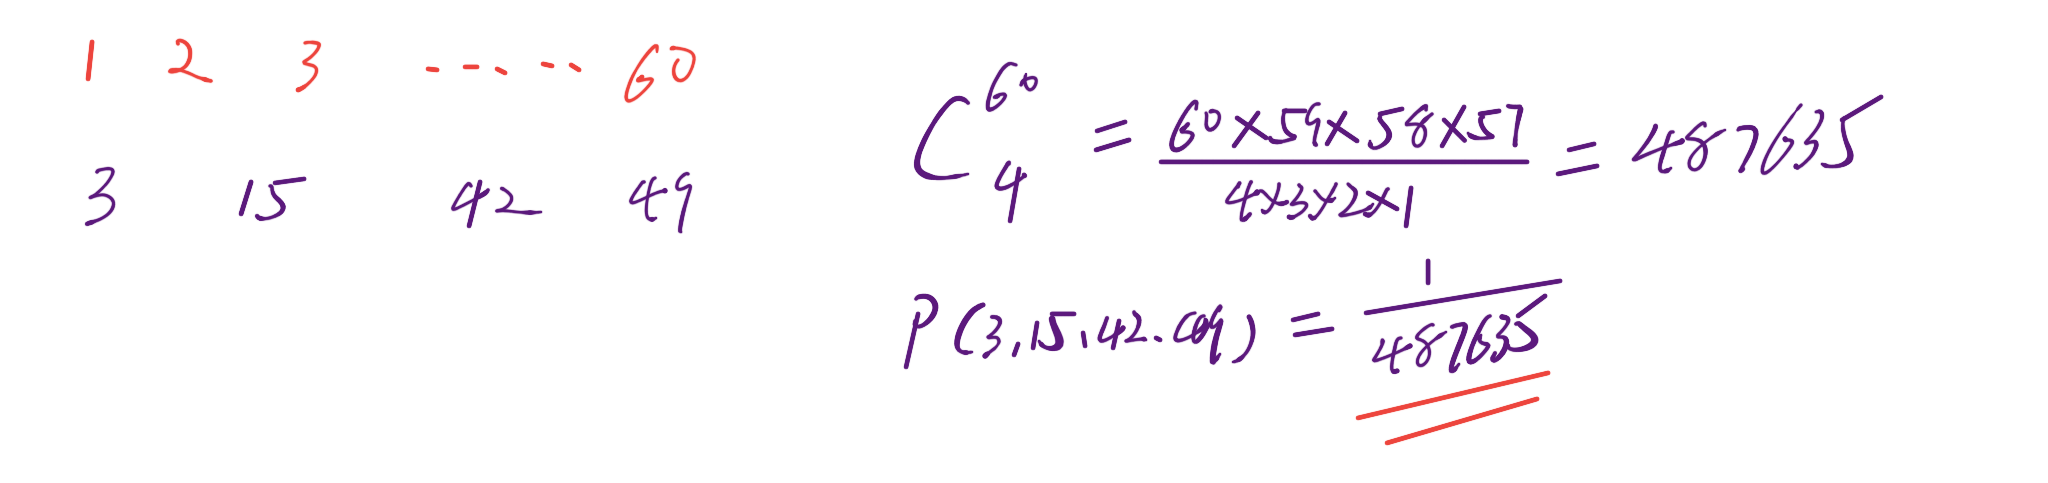 1 2 3 ...... 60
3 15 42 49
C^{60}_{4} = \frac{60×59×58×57}{4×3×2×1} = 487635
P(3,15,42.49) = \frac{1}{487635}